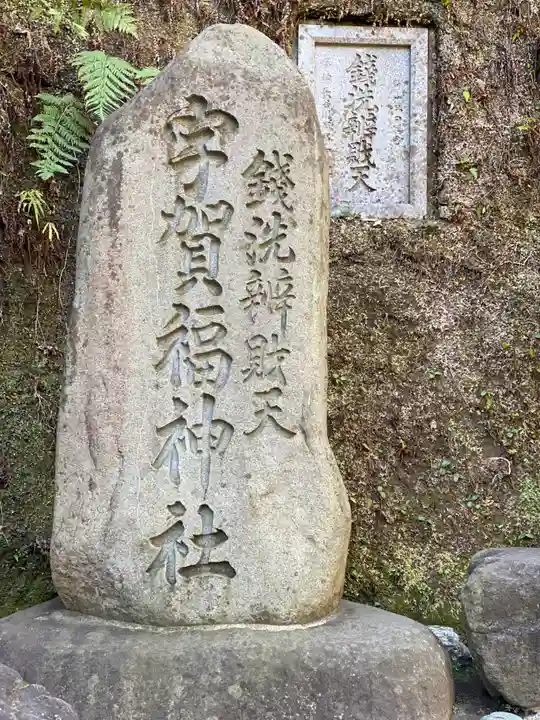 銭洗辨財天
宇賀福神社
銭洗辨財天